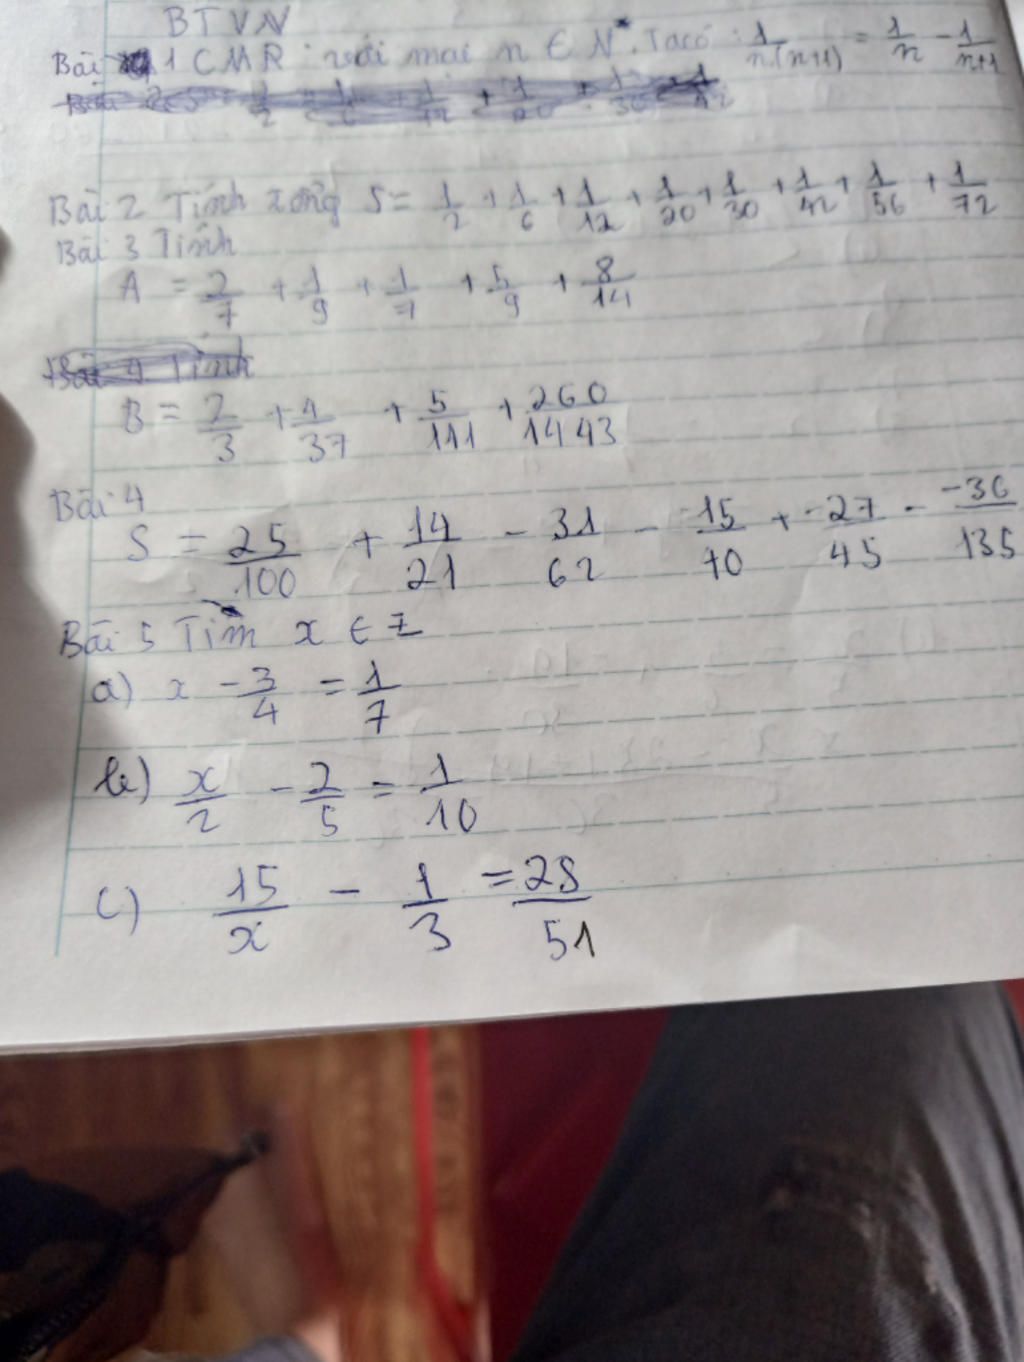 BTVN
Bài 1 CMR: với mọi n ∈ N*. Ta có: 1/n(n+1) = 1/n - 1/n+1
Bài 2 Tính tổng S = 1/2 + 1/6 + 1/12 + 1/20 + 1/30 + 1/42 + 1/56 + 1/72
Bài 3 Tính
A = 2/7 + 1/9 + 1/7 + 5/9 + 8/14
B = 2/3 + 4/37 + 5/111 + 260/1443
Bài 4
S = 25/100 + 14/21 - 31/62 - 15/70 + -27/45 - -36/135
Bài 5 Tìm x ∈ Z
a) x - 3/4 = 1/7
b) x/2 - 2/5 = 1/10
c) 15/x - 1/3 = 28/51